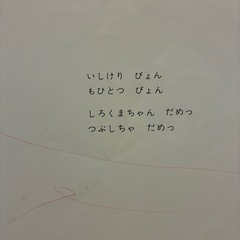 いしけり　ぴょん
もひとつ　ぴょん
しろくまちゃん　だめっ
つぶしちゃ　だめっ